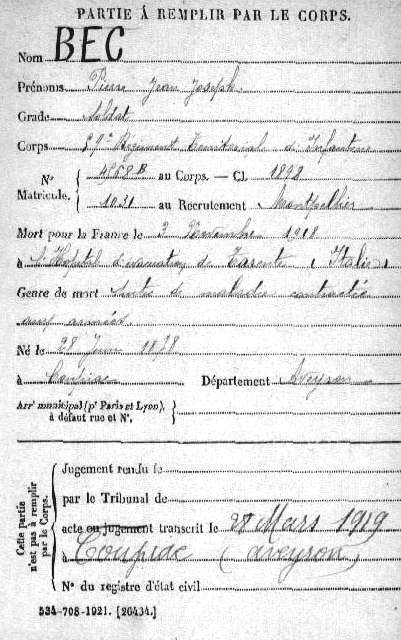 PARTIE À REMPLIR PAR LE CORPS.
Nom BEC
Prénoms Pierre Jean Joseph
Grade Soldat
Corps Régiment Territorial d'Infanterie
Nº Matricule. { 4568 B au Corps. — Cl. 1898
1031 au Recrutement Montpellier
Mort pour la France le 3 1918
à l'Hôpital d'évacuation de Tarente (Italie)
Genre de mort Suites de maladie contractée
aux armées
Né le 28 Juin 1878
à Coupiac Département Aveyron
Arrt municipal (pr Paris et Lyon), à défaut rue et Nº. }
Cette partie n'est pas à remplir par le Corps.
Jugement rendu le
par le Tribunal de
acte ou jugement transcrit le 28 Mars 1919
à Coupiac (Aveyron)
Nº du registre d'état civil
534-708-1921. [26434.]